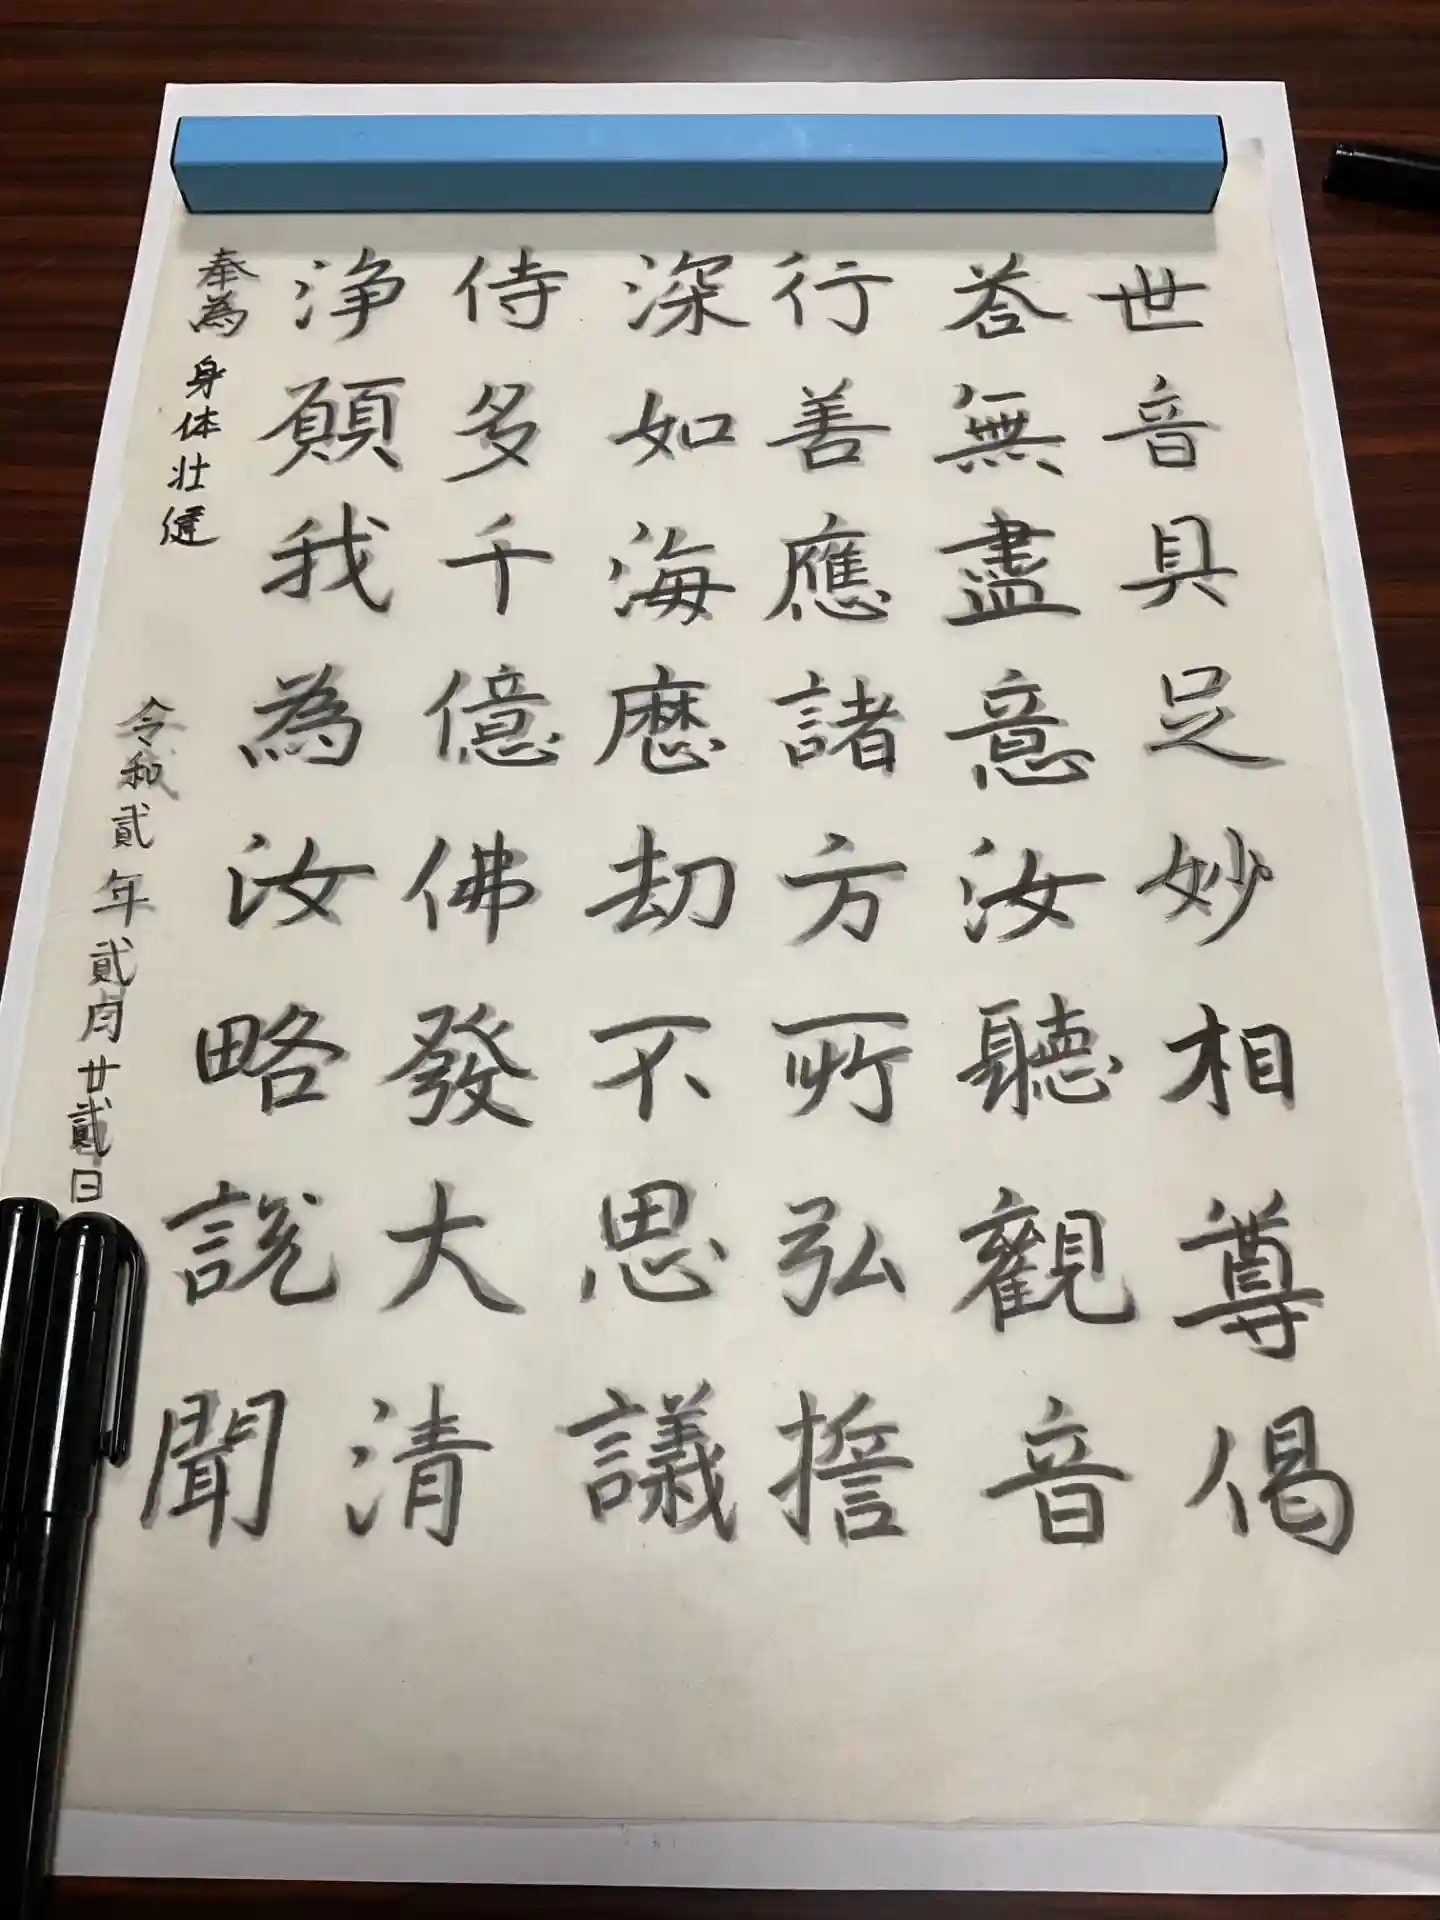 世音具足妙相尊偈
荅無盡意汝聽觀音
行善應諸方所弘誓
深如海歷刧不思議
侍多千億佛發大清
浄願我為汝略説聞
奉為 身体壮健
令和貳年貳月廿貳日